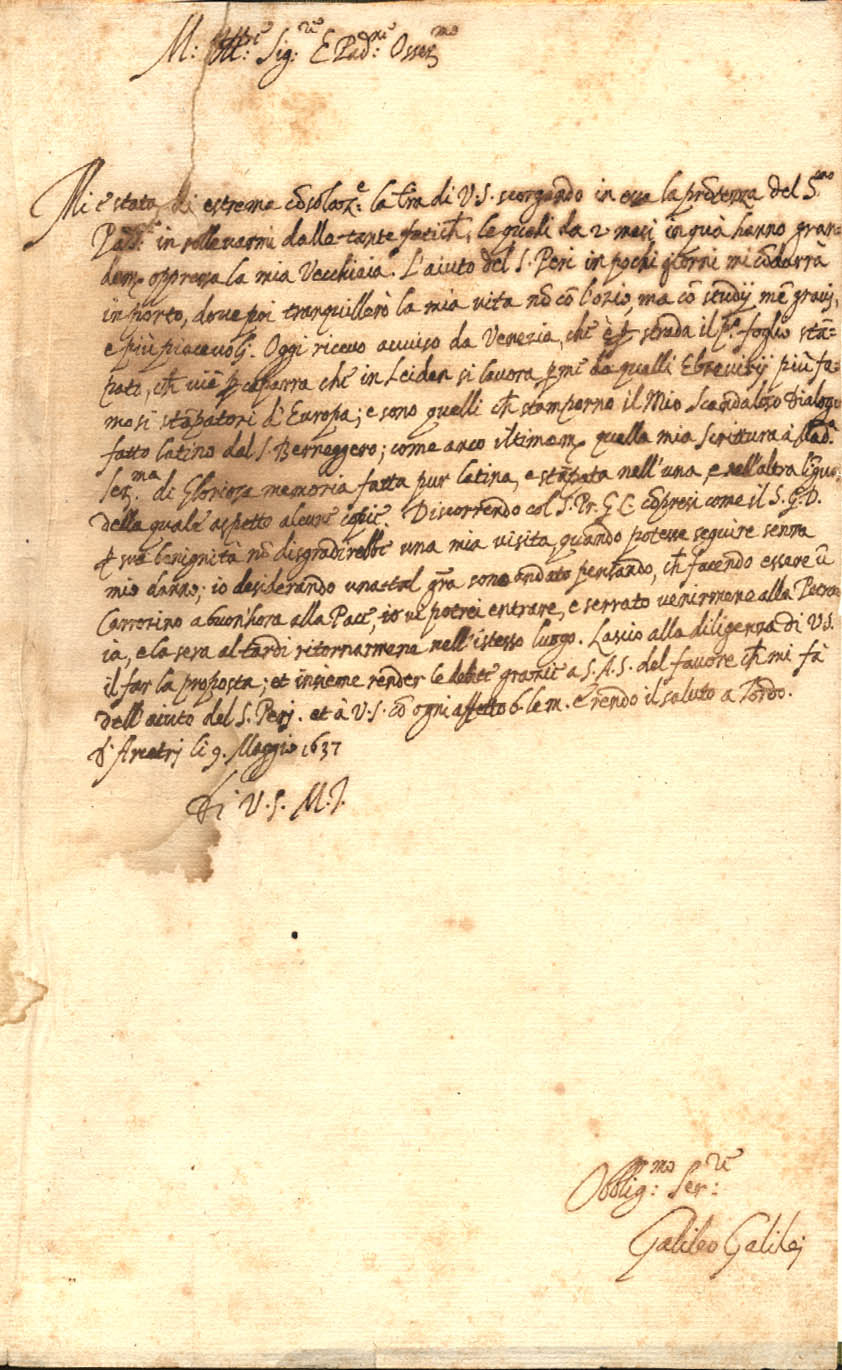 M: Ill:re Sig:re E Pad:ne Osser:mo
Mi è stata di estrema cōsolaz:e la lr̃a di V.S. scorgendo in essa la prōtezza del S.mo
Pad: in sollevarmi dalle tante fatich̃, le quali da 2 mesi in quà hanno gran=
dem. oppressa la mia Vecchiaia. L'aiuto del S. Peri in pochi giorni mi cōdurrà
in porto, dove poi tranquillerò la mia vita nō cō l'ozio, ma cō studij mē gravi,
e più piacevoli. Oggi ricevo avviso da Venezia, che è p strada il p.o foglio stā=
pato, ch̃ viē p caparra che in Leiden si lavora da quelli Elzevirij più fa=
mosi stāpatori d'Europa; e sono quelli ch̃ stamporno il Mio Scandaloso Dialogo
fatto latino dal S. Berneggero; come anco ultimam. quella mia Scrittura à Mad.a
Ser.ma di Gloriosa memoria fatta pur latina, e stāpata nell'una, e nell'altra līgua,
della quale aspetto alcune copie. Discorrendo col S. Pr. G C cōpresi come il S. G. D.
p sua benignità nō disgradirebbe una mia visita quando potesse seguire senza
mio danno; io desiderando una tal gr̃a sono andato pensando, ch̃ facendo essere ū
Carrozino a buon'hora alla Pace, io vi potrei entrare, e serrato venirmene alla Petra=
ia, e la sera al tardi ritornarmene nell'istesso luogo. Lascio alla diligenza di V.S.
il far la proposta; et insieme render le debite grazie a S.A.S. del favore ch̃ mi fà
dell'aiuto del S. Perj. et à V.S. cō ogni affetto b. le m. e rendo il saluto a Tordo.
d'Arcetrj li 9. Maggio 1637
Di V.S. M.I.
Obblig:mo Ser:re
Galileo Galilej